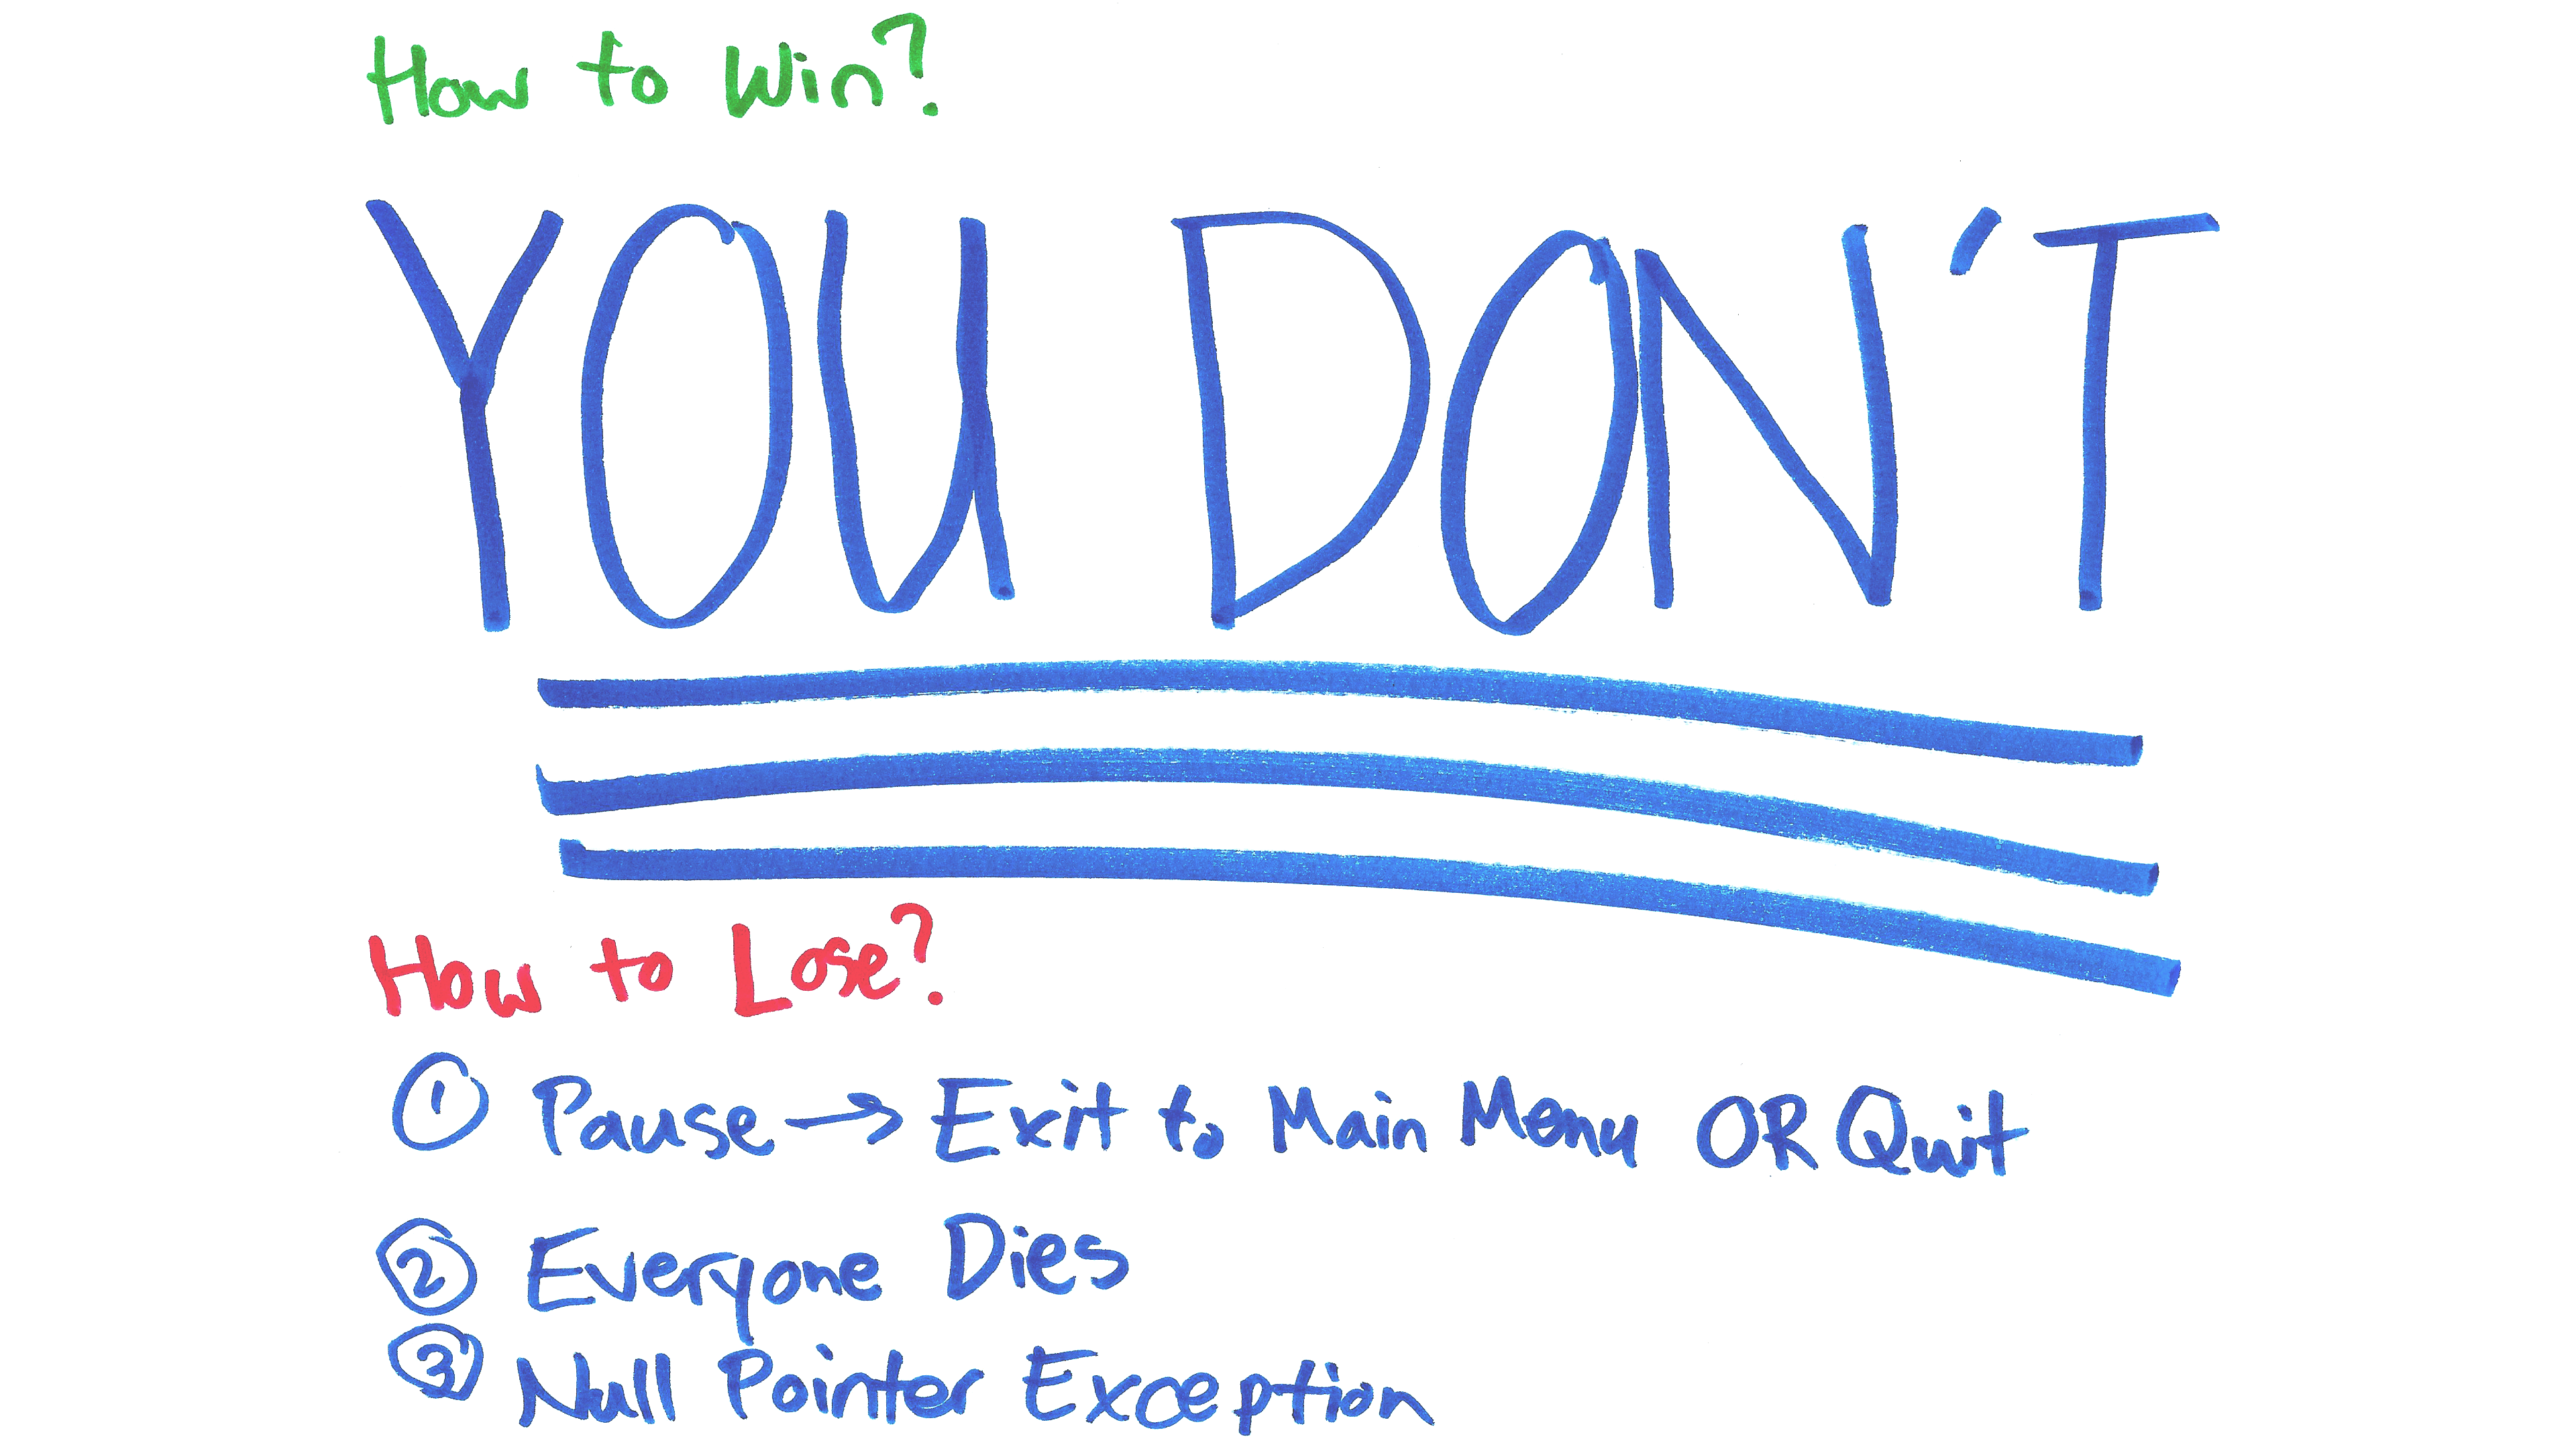 How to Win?
YOU DON'T
How to Lose?
① Pause → Exit to Main Menu OR Quit
② Everyone Dies
③ Null Pointer Exception